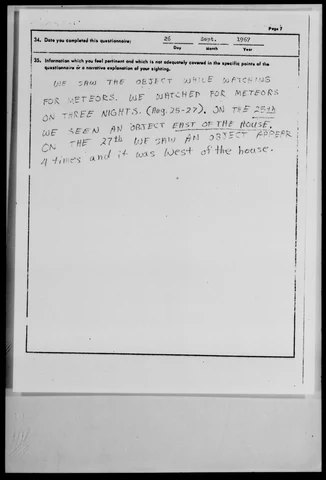 Page 7
34. Date you completed this questionnaire: 26 Sept. 1967
Day Month Year
35. Information which you feel pertinent and which is not adequately covered in the specific points of the
questionnaire or a narrative explanation of your sighting.
WE SAW THE OBJECT WHILE WATCHING
FOR METEORS. WE WATCHED FOR METEORS
ON THREE NIGHTS. (Aug. 25-27). ON THE 25th
WE SEEN AN OBJECT EAST OF THE HOUSE.
ON THE 27th WE SAW AN OBJECT APPEAR
4 times and it was West of the house.